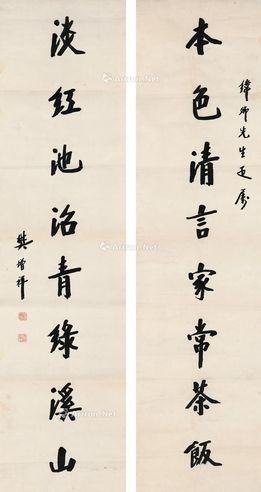 緯卿先生正屬
本色清言家常茶飯
淡紅池沼青綠溪山
樊增祥